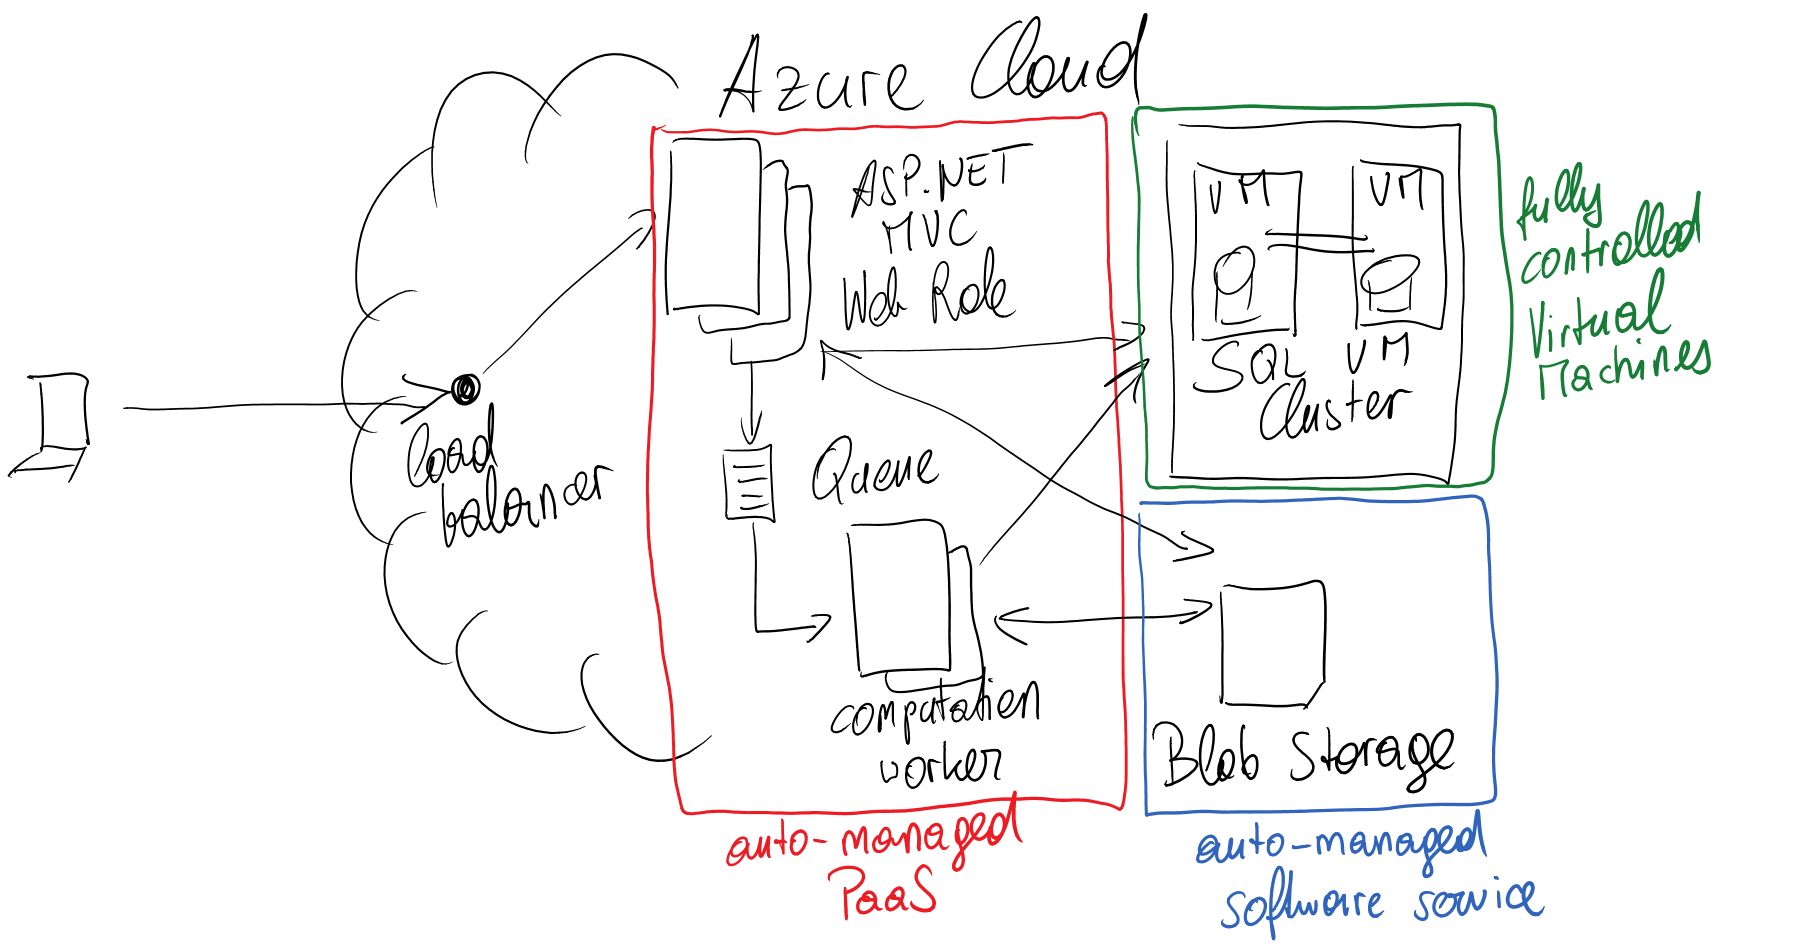 Azure Cloud
ASP.NET
MVC
Web Role
load
balancer
Queue
computation
worker
auto-managed
PaaS
VM
VM
SQL VM
Cluster
fully
controlled
Virtual
Machines
Blob Storage
auto-managed
software service